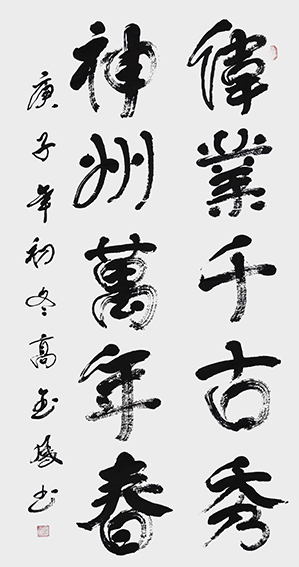 偉業千古秀
神州萬年春
庚子年初冬高玉盛书